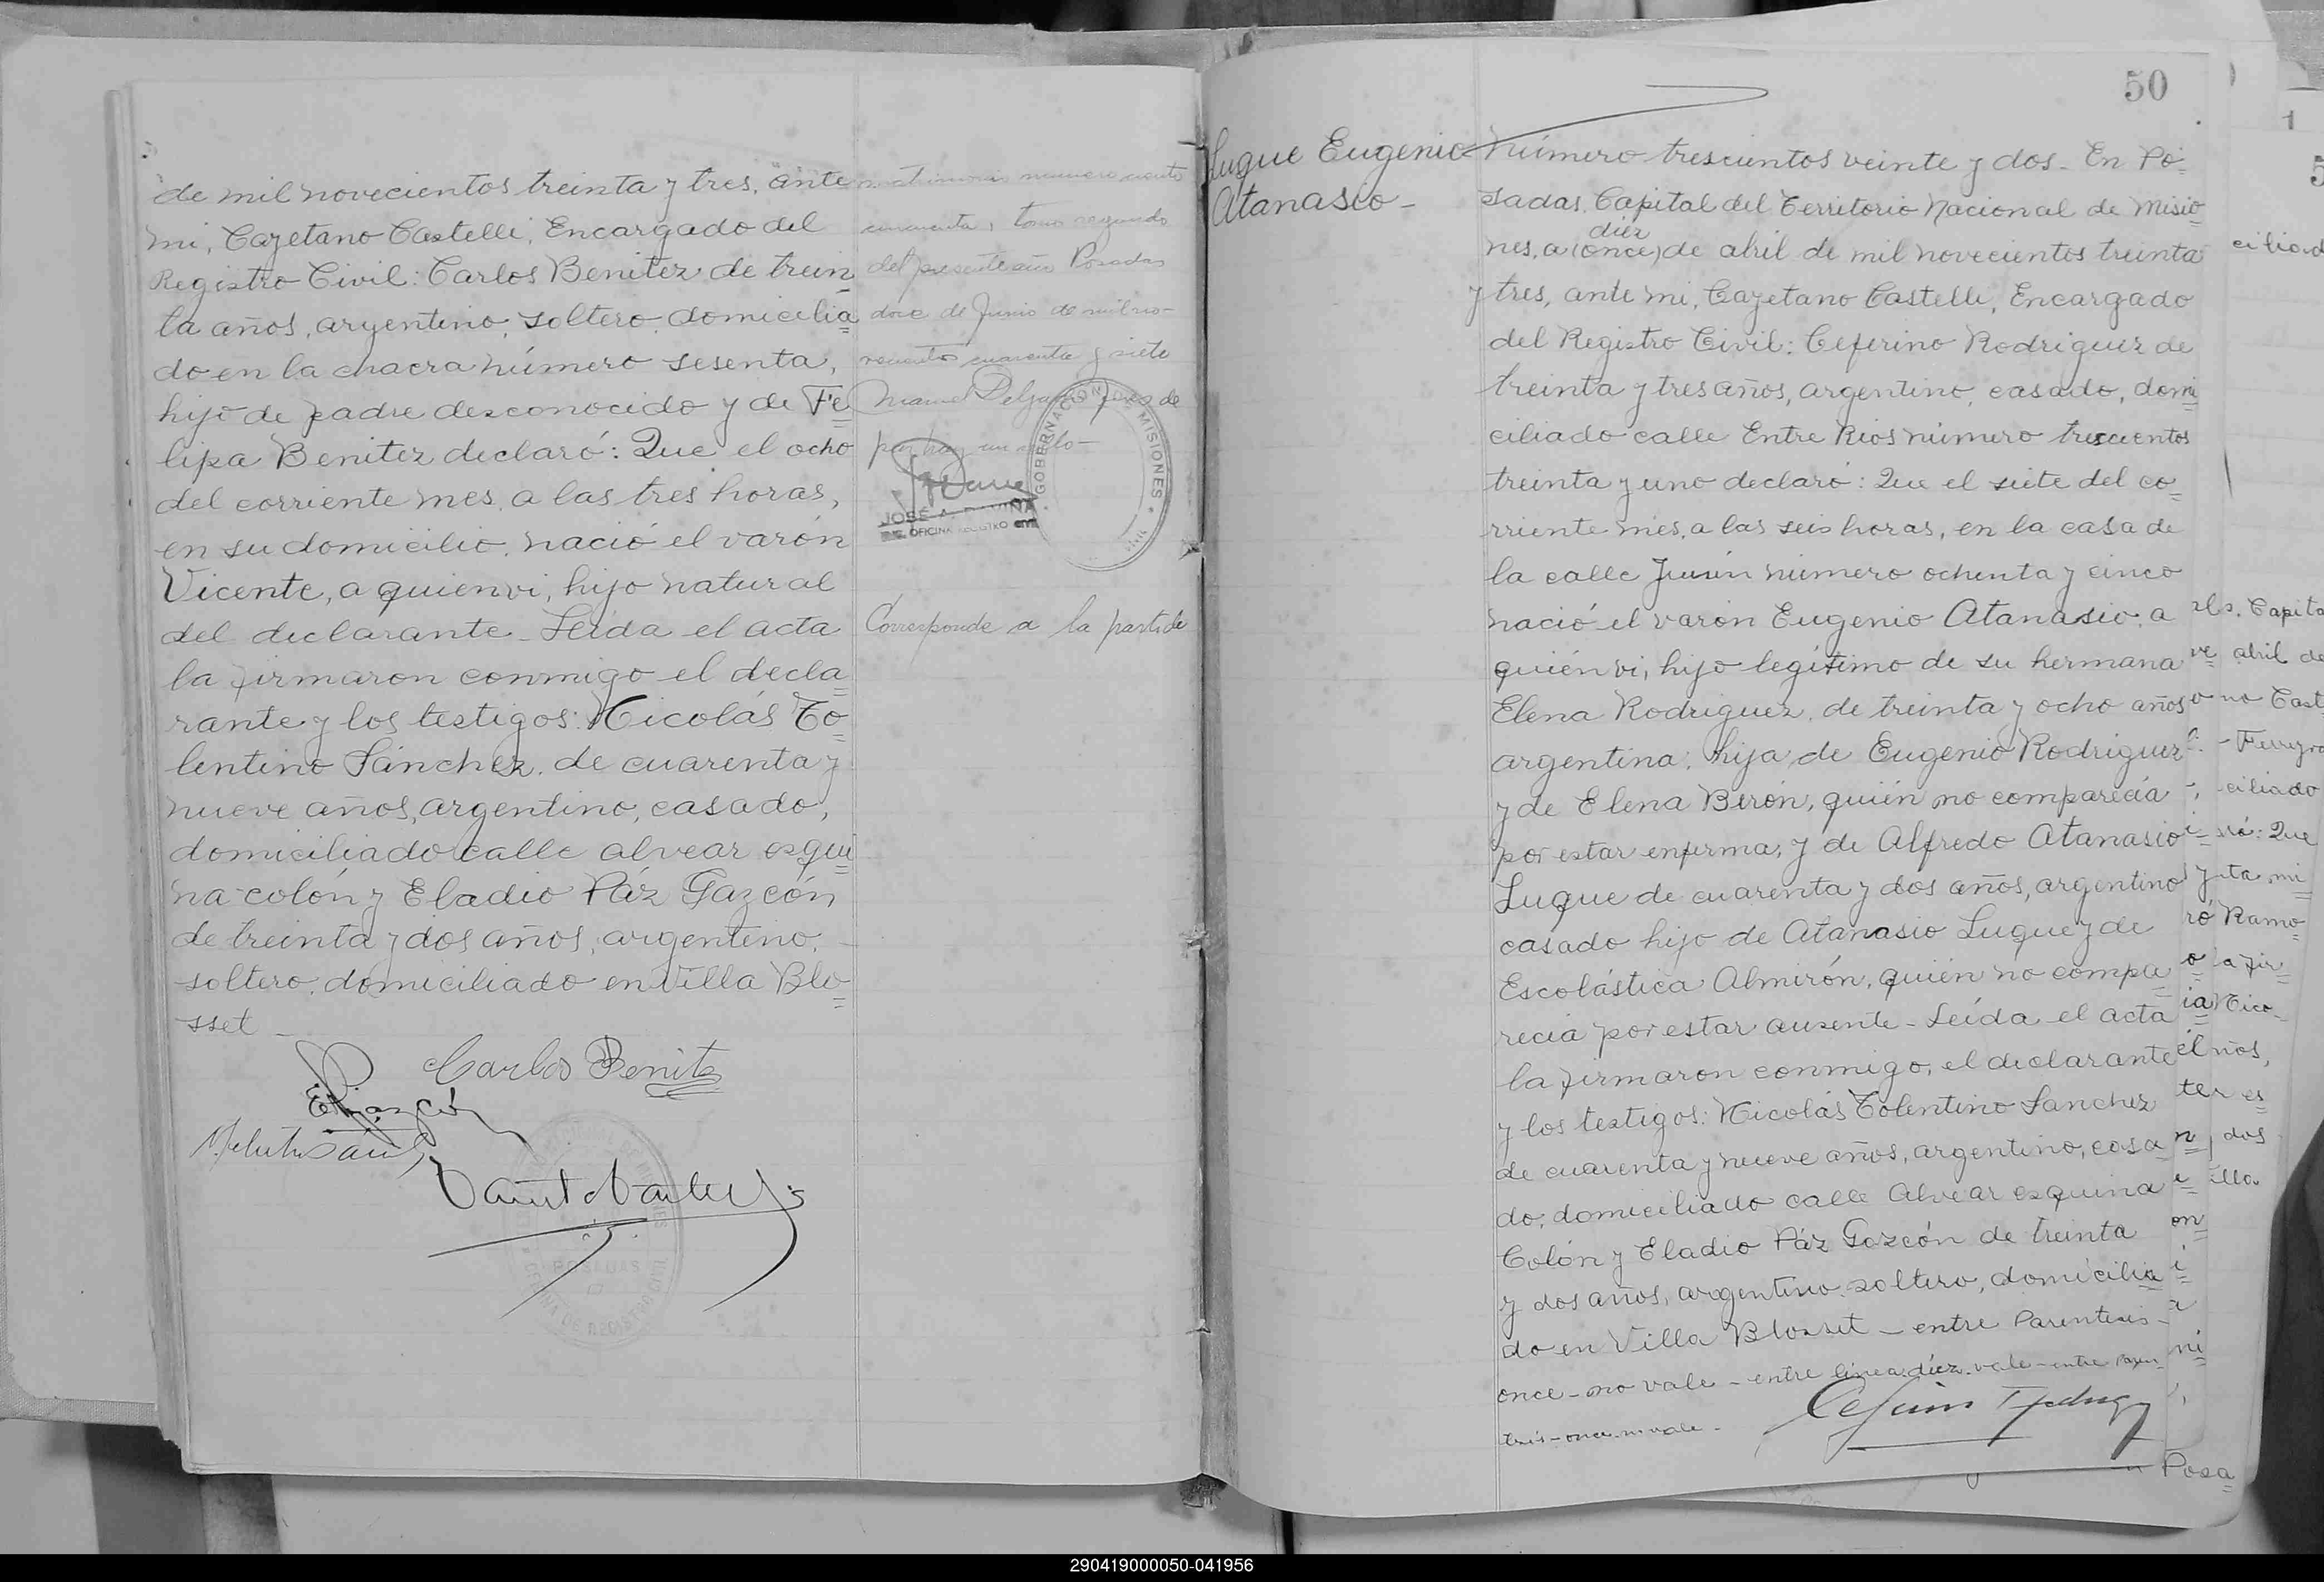 de mil novecientos treinta y tres, ante
mi, Cayetano Castelli, Encargado del
Registro Civil: Carlos Benitez de trein
ta años, argentino, soltero, domicilia
do en la chacra número sesenta,
hijo de padre desconocido y de Fe
lipa Benitez declaró: Que el ocho
del corriente mes, a las tres horas,
en su domicilio, nació el varón
Vicente, a quien vi, hijo natural
del declarante - Leída el acta
la firmaron conmigo el decla
rante y los testigos: Nicolás To
lentino Sánchez, de cuarenta y
nueve años, argentino, casado,
domiciliado calle alvear esqui
na colón y Eladio Páz Gazcón
de treinta y dos años, argentino,
soltero, domiciliado en Villa Blo
sset -
Carlos Benitz
matrimonio numero ciento
cincuenta, tomo segundo
del presente año Posadas
doce de Junio de mil no-
vecientos cuarenta y siete
GOBERNACION DE MISIONES
JOSÉ A.
OFICINA REGISTRO
Corresponde a la partida
50
Luque Eugenio
Atanasio -
Número trescientos veinte y dos - En Po
sadas, Capital del Territorio Nacional de Misio
diez
nes, a (once) de abril de mil novecientos treinta
y tres, ante mi, Cayetano Castelli, Encargado
del Registro Civil: Ceferino Rodriguez de
treinta y tres años, argentino, casado, domi
ciliado calle Entre Rios número trescientos
treinta y uno declaró: Que el siete del co
rriente mes, a las seis horas, en la casa de
la calle Junín número ochenta y cinco
nació el varón Eugenio Atanasio, a
quién vi, hijo legítimo de su hermana
Elena Rodriguez, de treinta y ocho años
argentina, hija de Eugenio Rodriguez
y de Elena Birón, quién no comparecía
por estar enferma, y de Alfredo Atanasio
Luque de cuarenta y dos años, argentino
casado hijo de Atanasio Luque y de
Escolástica Almirón, quién no compa
recía por estar ausente - Leída el acta
la firmaron conmigo, el declarante
y los testigos: Nicolás Tolentino Sanchez
de cuarenta y nueve años, argentino, casa
do, domiciliado calle Alvear esquina
Colón y Eladio Páz Gazcón de treinta
y dos años, argentino, soltero, domicilia
do en Villa Blosset - entre Parentesis -
once - no vale - entre linea: diez. vale - entre Paren
tesis - once. no vale -
290419000050-041956